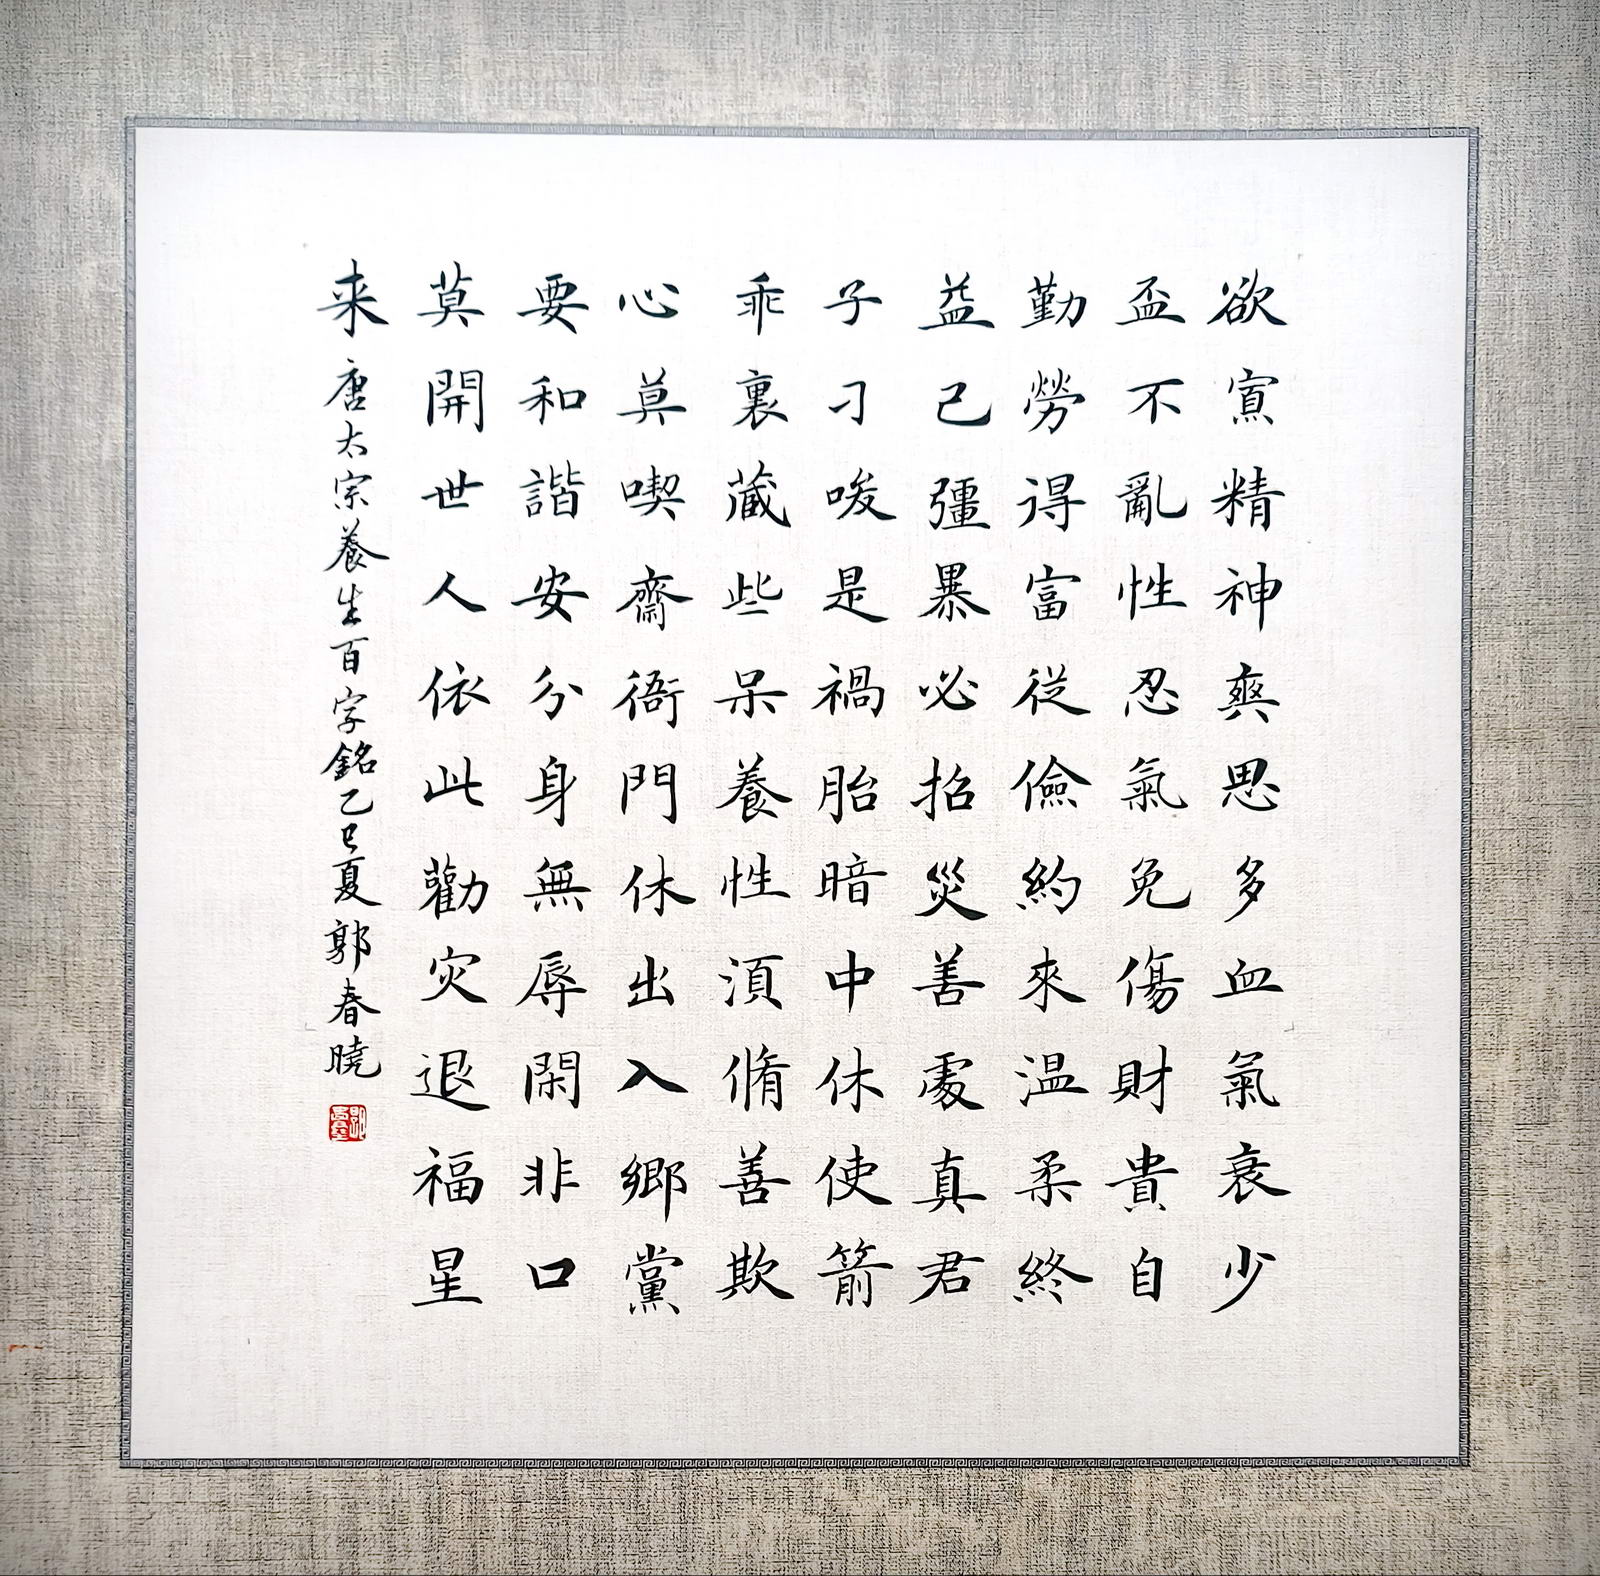 欲寡精神爽思多血氣衰少
盃不亂性忍氣免傷財貴自
勤勞得富從儉約來温柔終
益己彊暴必招災善處真君
子刁唆是禍胎暗中休使箭
乖裏藏些呆養性湏脩善欺
心莫喫齋衙門休出入鄉黨
要和諧安分身無辱閑非口
莫開世人依此勸灾退福星
来 唐太宗養生百字銘乙巳夏郭春曉